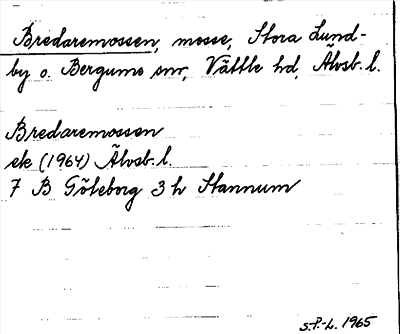 Bredaremossen, mosse, Stora Lund-
by o. Bergums snr, Vättle hd, Älvsb. l.
Bredaremossen
ek (1964) Älvsb. l.
7 B Göteborg 3 h Stannum
S.P.-L. 1965